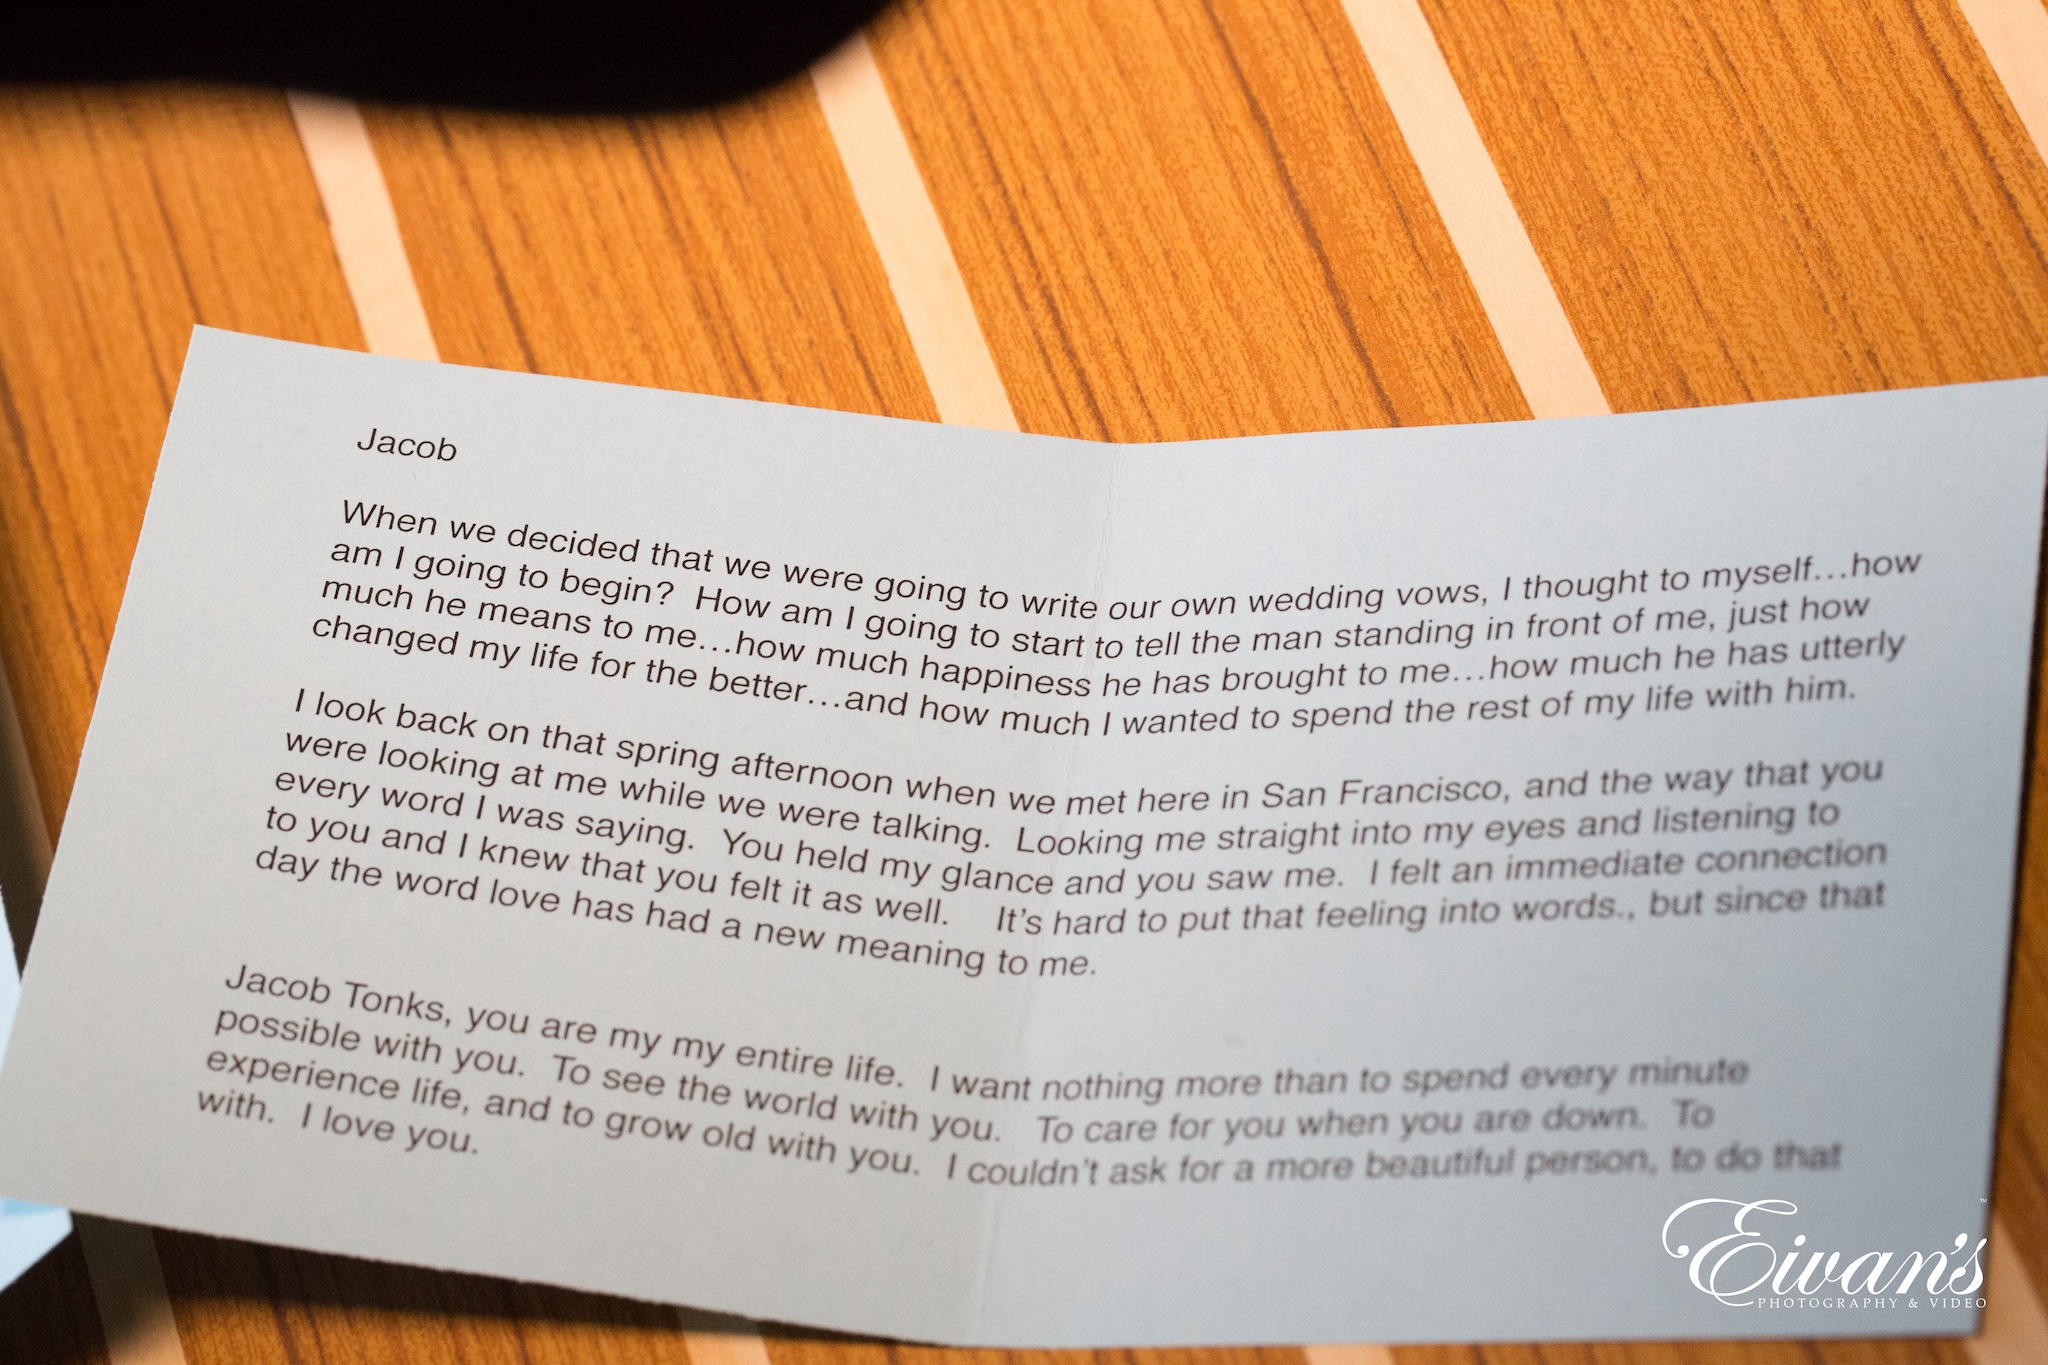 Jacob
When we decided that we were going to write our own wedding vows, I thought to myself…how
am I going to begin?  How am I going to start to tell the man standing in front of me, just how
much he means to me…how much happiness he has brought to me…how much he has utterly
changed my life for the better…and how much I wanted to spend the rest of my life with him.
I look back on that spring afternoon when we met here in San Francisco, and the way that you
were looking at me while we were talking.  Looking me straight into my eyes and listening to
every word I was saying.  You held my glance and you saw me.  I felt an immediate connection
to you and I knew that you felt it as well.    It's hard to put that feeling into words., but since that
day the word love has had a new meaning to me.
Jacob Tonks, you are my my entire life.  I want nothing more than to spend every minute
possible with you.  To see the world with you.   To care for you when you are down.  To
experience life, and to grow old with you.  I couldn't ask for a more beautiful person, to do that
with.  I love you.
Eivan's™
PHOTOGRAPHY & VIDEO